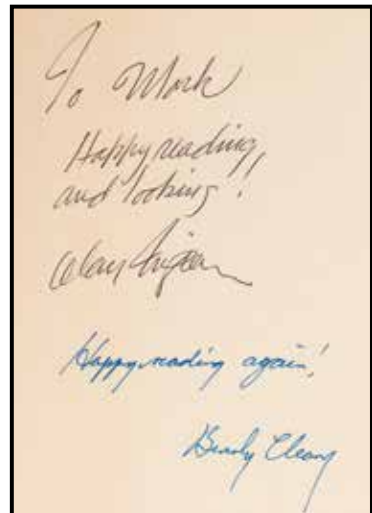 To Mark
Happy reading,
and looking!
Alan Tiegreen
Happy reading again!
Beverly Cleary